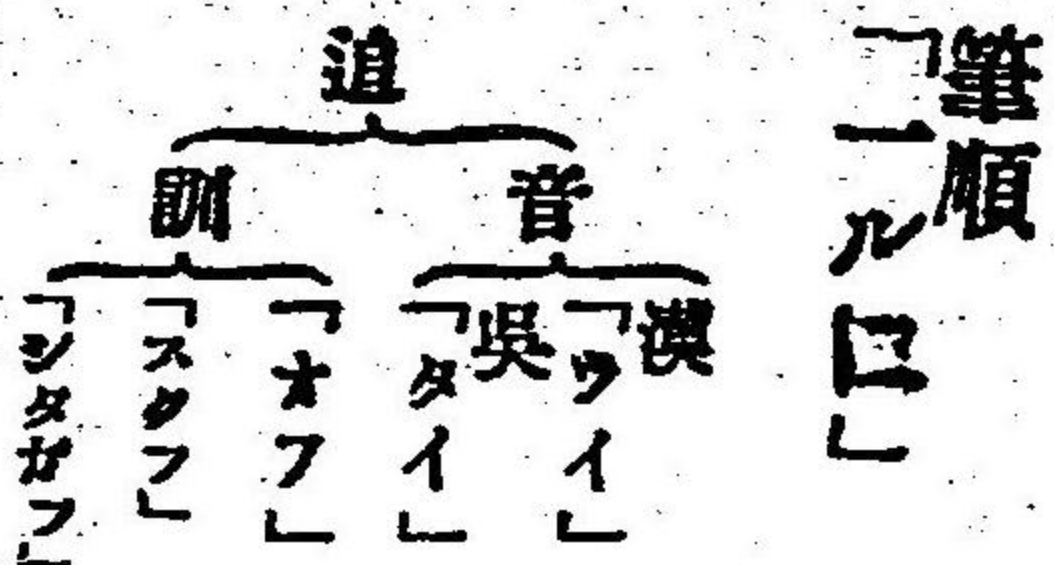 筆順
「一ル
追
音
漢「ツイ」
呉「タイ」
訓
「オフ」
「スクフ」
「シタガフ」